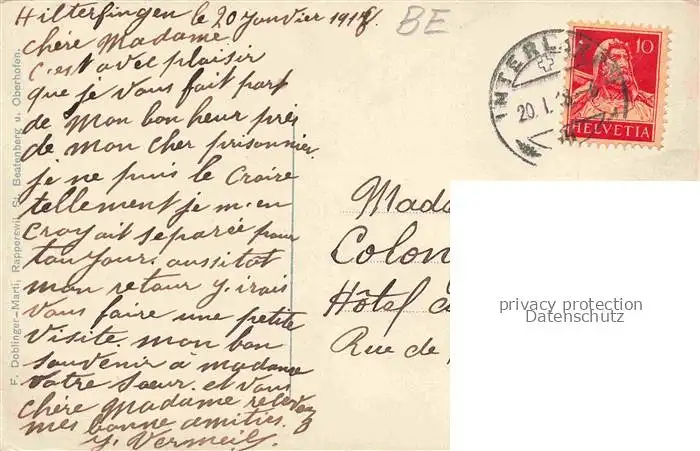 Hilterfingen le 20 Janvier 1918.
BE
chère Madame
C'est avec plaisir
que je vous fait part
de mon bonheur près
de mon cher prisonnier.
je ne puis le croire
tellement je m'en
croyait separée pour
toujours. aussitot
mon retour j'irais
vous faire une petite
visite. mon bon
souvenir à madame
votre sœur. et vous
chère Madame recevez
mes bonne amitiés.
Y. Vermeil
F. Doblinger-Marti, Rapperswil, St. Beatenberg u. Oberhofen.
INTERLAKEN
20.I.18
10
HELVETIA
Mada
Colon
Hôtel
Rue de
privacy protection
Datenschutz